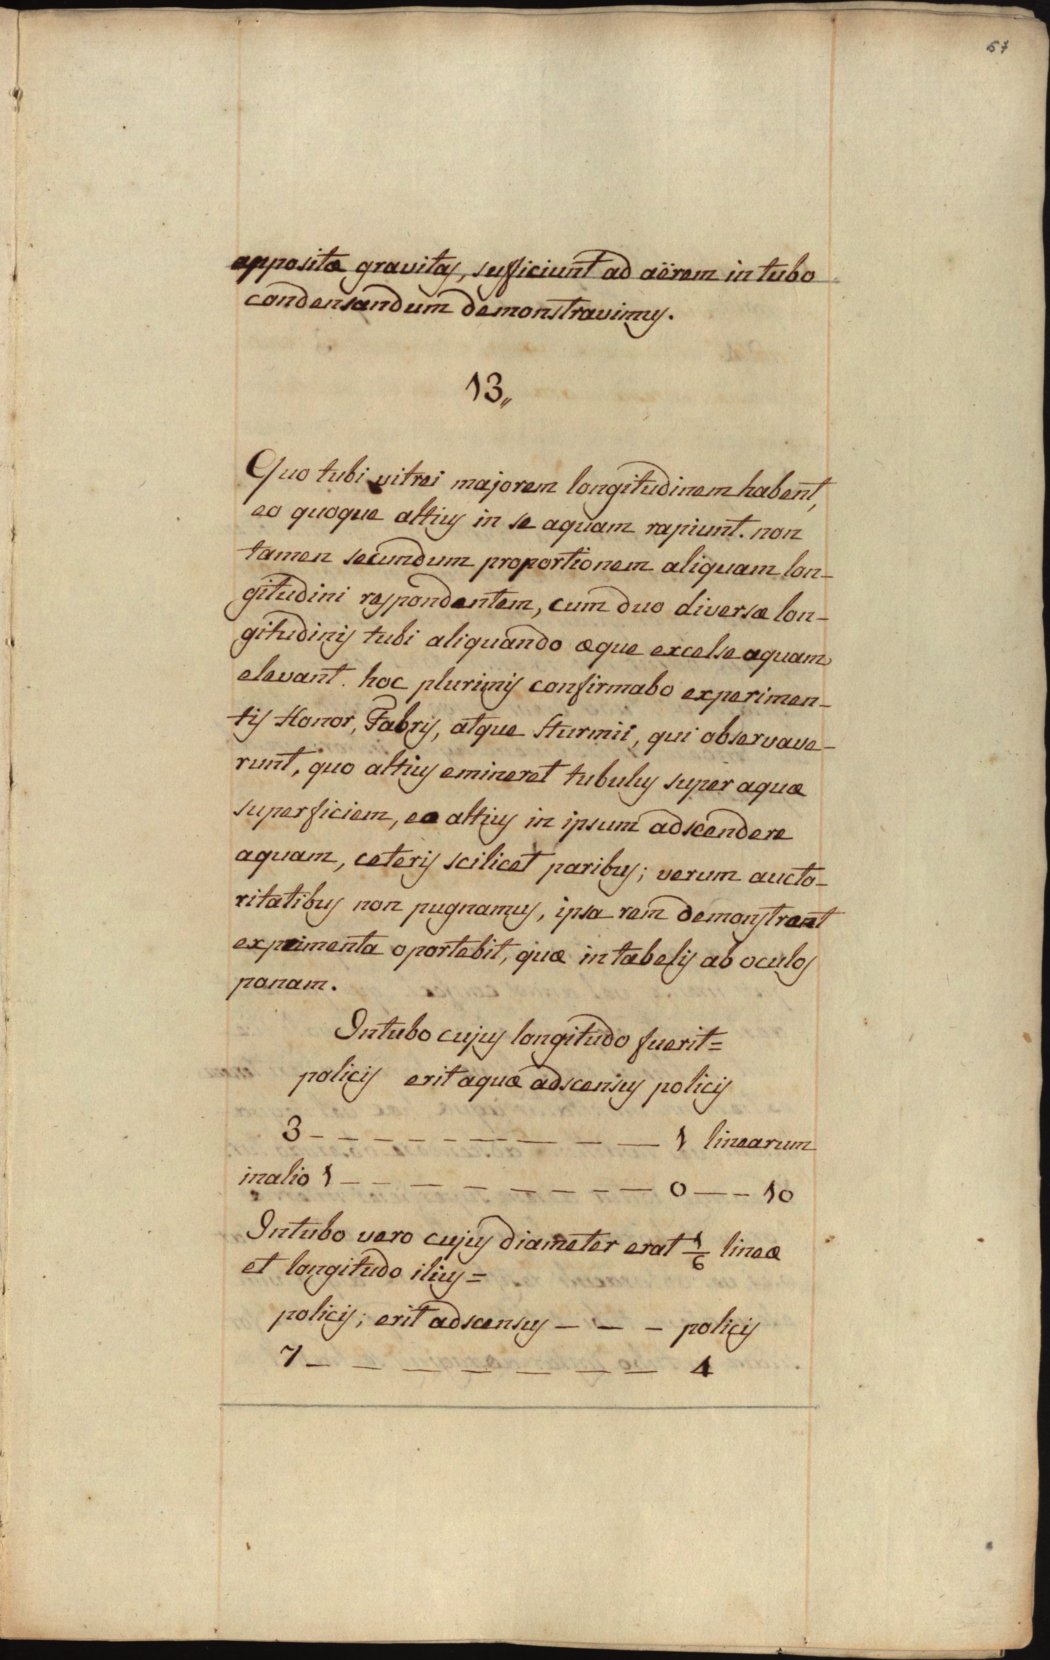 67
appositæ gravitas, sufficiunt ad aërem in tubo
condensandum demonstravimus.
13,,
Quo tubi vitrei majorem longitudinem habent,
eo quoque altius in se aquam rapiunt. non
tamen secundum proportionem aliquam lon-
gitudini respondentem, cum duo diversæ lon-
gitudinis tubi aliquando æque excelse aquam
elevant. hoc plurimis confirmabo experimen-
tis Honor, Fabris, atque Sturmii, qui observave-
runt, quo altius emineret tubulus super aquæ
superficiem, eo altius in ipsum adscendere
aquam, ceteris scilicet paribus; verum aucto-
ritatibus non pugnamus, ipsa rem demonstrent
exprimenta oportebit, quæ in tabelis ab oculos
ponam.
In tubo cujus longitudo fuerit=
policis erit aquæ adscensus policis
3 – – – – – – – – – – 1 linearum
in alio 1 – – – – – – – – – 0 – – – 10
In tubo vero cujus diameter erat 1/6 lineæ
et longitudo ilius=
policis; erit adscensus – – – policis
7 – – – – – – – 4